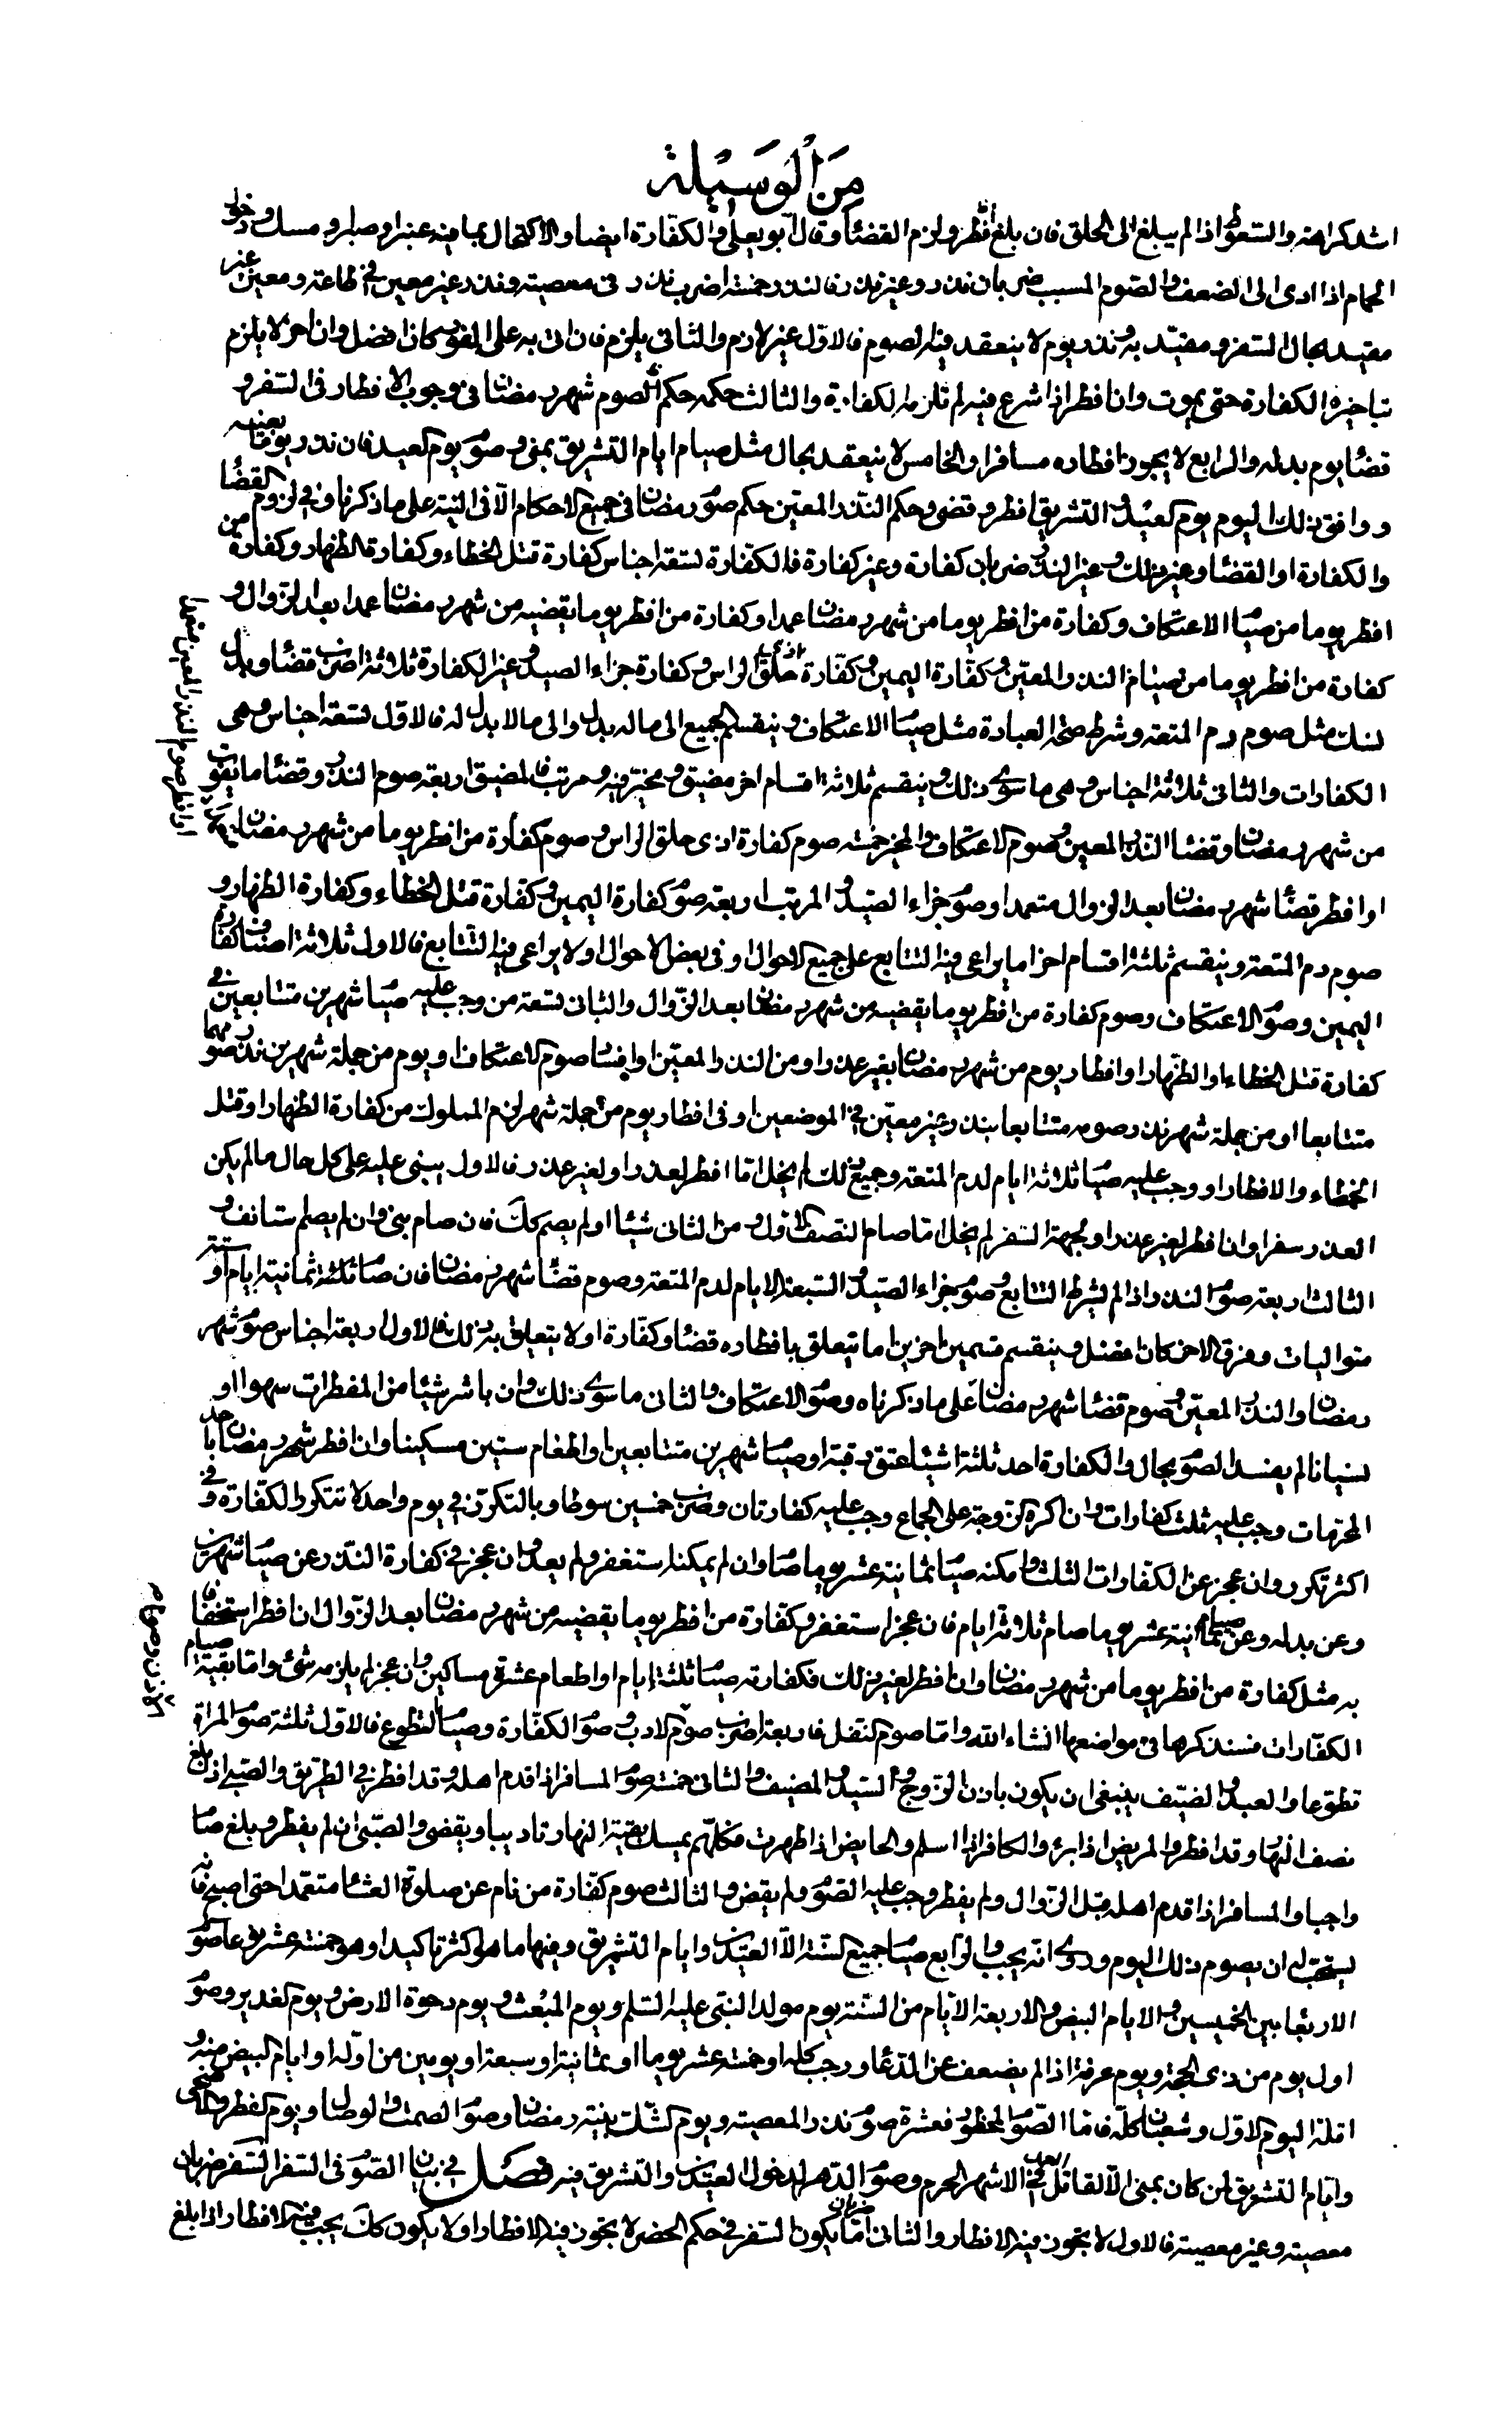 مِنَ الْوَسِيْلَة
اشد كراهة والسعوط اذا لم يبلغ الى الحلق فان بلغ افطر ولزم القضاء وقال ابو يعلى والكفارة ايضا والاكتحال بما فيه عنبر او صبر او مسك ودخول
الحمام اذا ادى الى الضعف والصوم المسبب ضربان نذر وغير نذر فالنذر خمسة اضرب نذر فى معصية ونذر غير معين فى طاعة ومعين غير
مقيد بحال السفر ومقيد به ونذر يوم لا ينعقد فيه الصوم فالاول غير لازم والثانى يلزم فان اتى به على الفور كان افضل وان اخر لا يلزم
بتاخيره الكفارة حتى يموت وان افطر اذا شرع فيه لم تلزمه الكفارة والثالث حكمه حكم الصوم شهر رمضان فى وجوب الافطار فى السفر و
قضاء يوم بدله والرابع لا يجوز افطاره مسافرا والخامس لا ينعقد بحال مثل صيام ايام التشريق بمنى وصوم يوم العيد فان نذر يوما بعينه
ووافق ذلك اليوم يوم العيد او التشريق افطر وقضى وحكم النذر المعين حكم صوم رمضان فى جميع الاحكام الا فى النية على ما ذكرنا وفى لزوم القضاء
والكفارة او القضاء وغير ذلك وغير النذر ضربان كفارة وغير كفارة فالكفارة تسعة اجناس كفارة قتل الخطاء وكفارة الظهار وكفارة من
افطر يوما من صيام الاعتكاف وكفارة من افطر يوما من شهر رمضان عمدا وكفارة من افطر يوما يقضيه من شهر رمضان عمدا بعد الزوال و
كفارة من افطر يوما من صيام النذر المعين وكفارة اليمين وكفارة اذى حلق الراس وكفارة جزاء الصيد وغير الكفارة ثلاثة اضرب قضاء وبدل
نسك مثل صوم دم المتعة وشرط صحة العبادة مثل صيام الاعتكاف وينقسم الجميع الى ماله بدل والى ما لا بدل له فالاول تسعة اجناس وهى
الكفارات والثانى ثلاثة اجناس وهى ما سوى ذلك وينقسم ثلاثة اقسام اخر مضيق ومخير فيه ومرتب فالمضيق اربعة صوم النذر وقضاء ما يفوت
من شهر رمضان وقضاء النذر المعين وصوم الاعتكاف والمخير خمسة صوم كفارة اذى حلق الراس وصوم كفارة من افطر يوما من شهر رمضان
او افطر قضاء شهر رمضان بعد الزوال متعمدا وصوم جزاء الصيد والمرتب اربعة صوم كفارة اليمين وكفارة قتل الخطاء وكفارة الظهار و
صوم دم المتعة وينقسم ثلثة اقسام اخر اما يراعى فيه التتابع على جميع الاحوال او فى بعض الاحوال او لا يراعى فيه التتابع فالاول ثلاثة اصناف كفارة
اليمين وصوم الاعتكاف وصوم كفارة من افطر يوما يقضيه من شهر رمضان بعد الزوال والثانى تسعة من وجب عليه صيام شهرين متتابعين فى
كفارة قتل الخطاء او الظهار او افطار يوم من شهر رمضان بغير عذر او من النذر المعين او افساد صوم الاعتكاف او يوم من جملة شهرين نذر صومهما
متتابعا او من جملة شهر نذر صومه متتابعا بنذر غير معين فى الموضعين او فى افطار يوم من جملة شهر لزم المملوك من كفارة الظهار او قتل
الخطاء والافطار او وجب عليه صيام ثلاثة ايام لدم المتعة وجميع ذلك لم يخل اما افطر لعذر او لغير عذر فالاول يبنى عليه على كل حال ما لم يكن
العذر سفرا وان افطر لغير عذر او لجهة السفر لم يخل اما صام النصف الاول ومن الثانى شيئا او لم يصم كك فان صام بنى وان لم يصم استانف و
الثالث اربعة صوم النذر اذا لم يشرط التتابع وصوم جزاء الصيد والسبعة الايام لدم المتعة وصوم قضاء شهر رمضان فان صام ثلثة ثمانية ايام او ستة
متواليات وفرق الاخر كان افضل وينقسم قسمين اخرين اما يتعلق بافطاره قضاء وكفارة او لا يتعلق به ذلك فالاول اربعة اجناس صوم شهر
رمضان والنذر المعين وصوم قضاء شهر رمضان على ما ذكرناه وصوم الاعتكاف والثانى ما سوى ذلك وان باشر شيئا من المفطرات سهوا او
نسيانا لم يفسد الصوم بحال والكفارة احد ثلثة اشياء عتق رقبة او صيام شهرين متتابعين او اطعام ستين مسكينا وان افطر شهر رمضان باحد
المحرمات وجب عليه ثلث كفارات وان اكره زوجته على الجماع وجب عليه كفارتان وضرب خمسين سوطا وبالتكرر فى يوم واحد لا تتكرر الكفارة وفى
اكثر تكرر وان عجز عن الكفارات الثلث وامكنه صيام ثمانية عشر يوما صام وان لم يمكنه استغفر ولم يعد وان عجز فى كفارة النذر عن صيام شهرين
وعن بدله وعن صيام ثمانية عشر يوما صام ثلاثة ايام فان عجز استغفر وكفارة من افطر يوما يقضيه من شهر رمضان بعد الزوال ان افطر استخفافا
به مثل كفارة من افطر يوما من شهر رمضان وان افطر لغير ذلك فكفارته صيام ثلثة ايام او اطعام عشرة مساكين وان عجز لم يلزمه شئ واما بقية صيام
الكفارات فسنذكرها فى مواضعها انشاء الله واما صوم النفل فاربعة اضرب صوم الادب وصوم الكفارة وصيام التطوع فالاول ثلثة صوم المراة
تطوعا والعبد والضيف ينبغى ان يكون باذن الزوج والسيد والمضيف والثانى خمسة صوم المسافر اذا قدم اهله وقد افطر فى الطريق والصبى اذا بلغ
نصف النهار وقد افطر والمريض اذا برئ والكافر اذا اسلم والحايض اذا طهرت فكلهم يمسك بقية النهار تاديبا ويقضى والصبى ان لم يفطر وبلغ صام
واجبا والمسافر اذا قدم اهله قبل الزوال ولم يفطر وجب عليه الصوم ولم يقض والثالث صوم كفارة من نام عن صلوة العشاء متعمدا حتى اصبح فانه
يستحب له ان يصوم ذلك اليوم وروى انه يجب والرابع صيام جميع السنة الا العيدين وايام التشريق وفيها ما هو اكثر تاكيدا وهو خمسة عشر نوعا صوم
الاربعاء بين الخميسين والايام البيض والاربعة الايام من السنة يوم مولد النبى عليه السلم ويوم المبعث ويوم دحوة الارض ويوم الغدير وصوم
اول يوم من ذى الحجة ويوم عرفة اذا لم يضعف عن الدعاء ورجب كله او خمسة عشر يوما او ثمانية او سبعة او يومين من اوله او ايام البيض منه و
اقله اليوم الاول وشعبان كله فاما الصوم المحظور فعشرة صوم نذر المعصية ويوم الشك بنية رمضان وصوم الصمت والوصال ويوم الفطر والاضحى
وايام التشريق لمن كان بمنى الا القاتل فى الاشهر الحرم وصوم الدهر لدخول العيدين والتشريق فيه فصل فى بيان الصوم فى السفر السفر ضربان
معصية وغير معصية فالاول لا يجوز فيه الافطار والثانى ضربان اما يكون السفر فى حكم الحضر لا يجوز فيه الافطار او لا يكون كك يجب فيه الافطار اذا بلغ